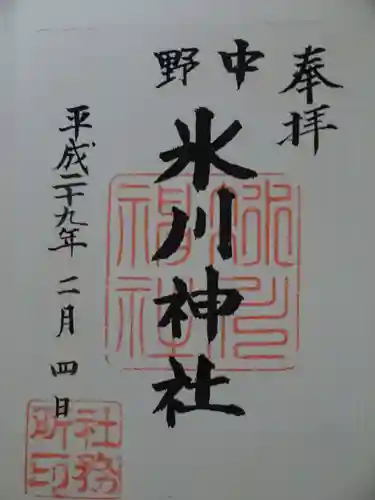 奉拝
中野
氷川神社
平成二十九年二月四日
氷川神社
社務所印